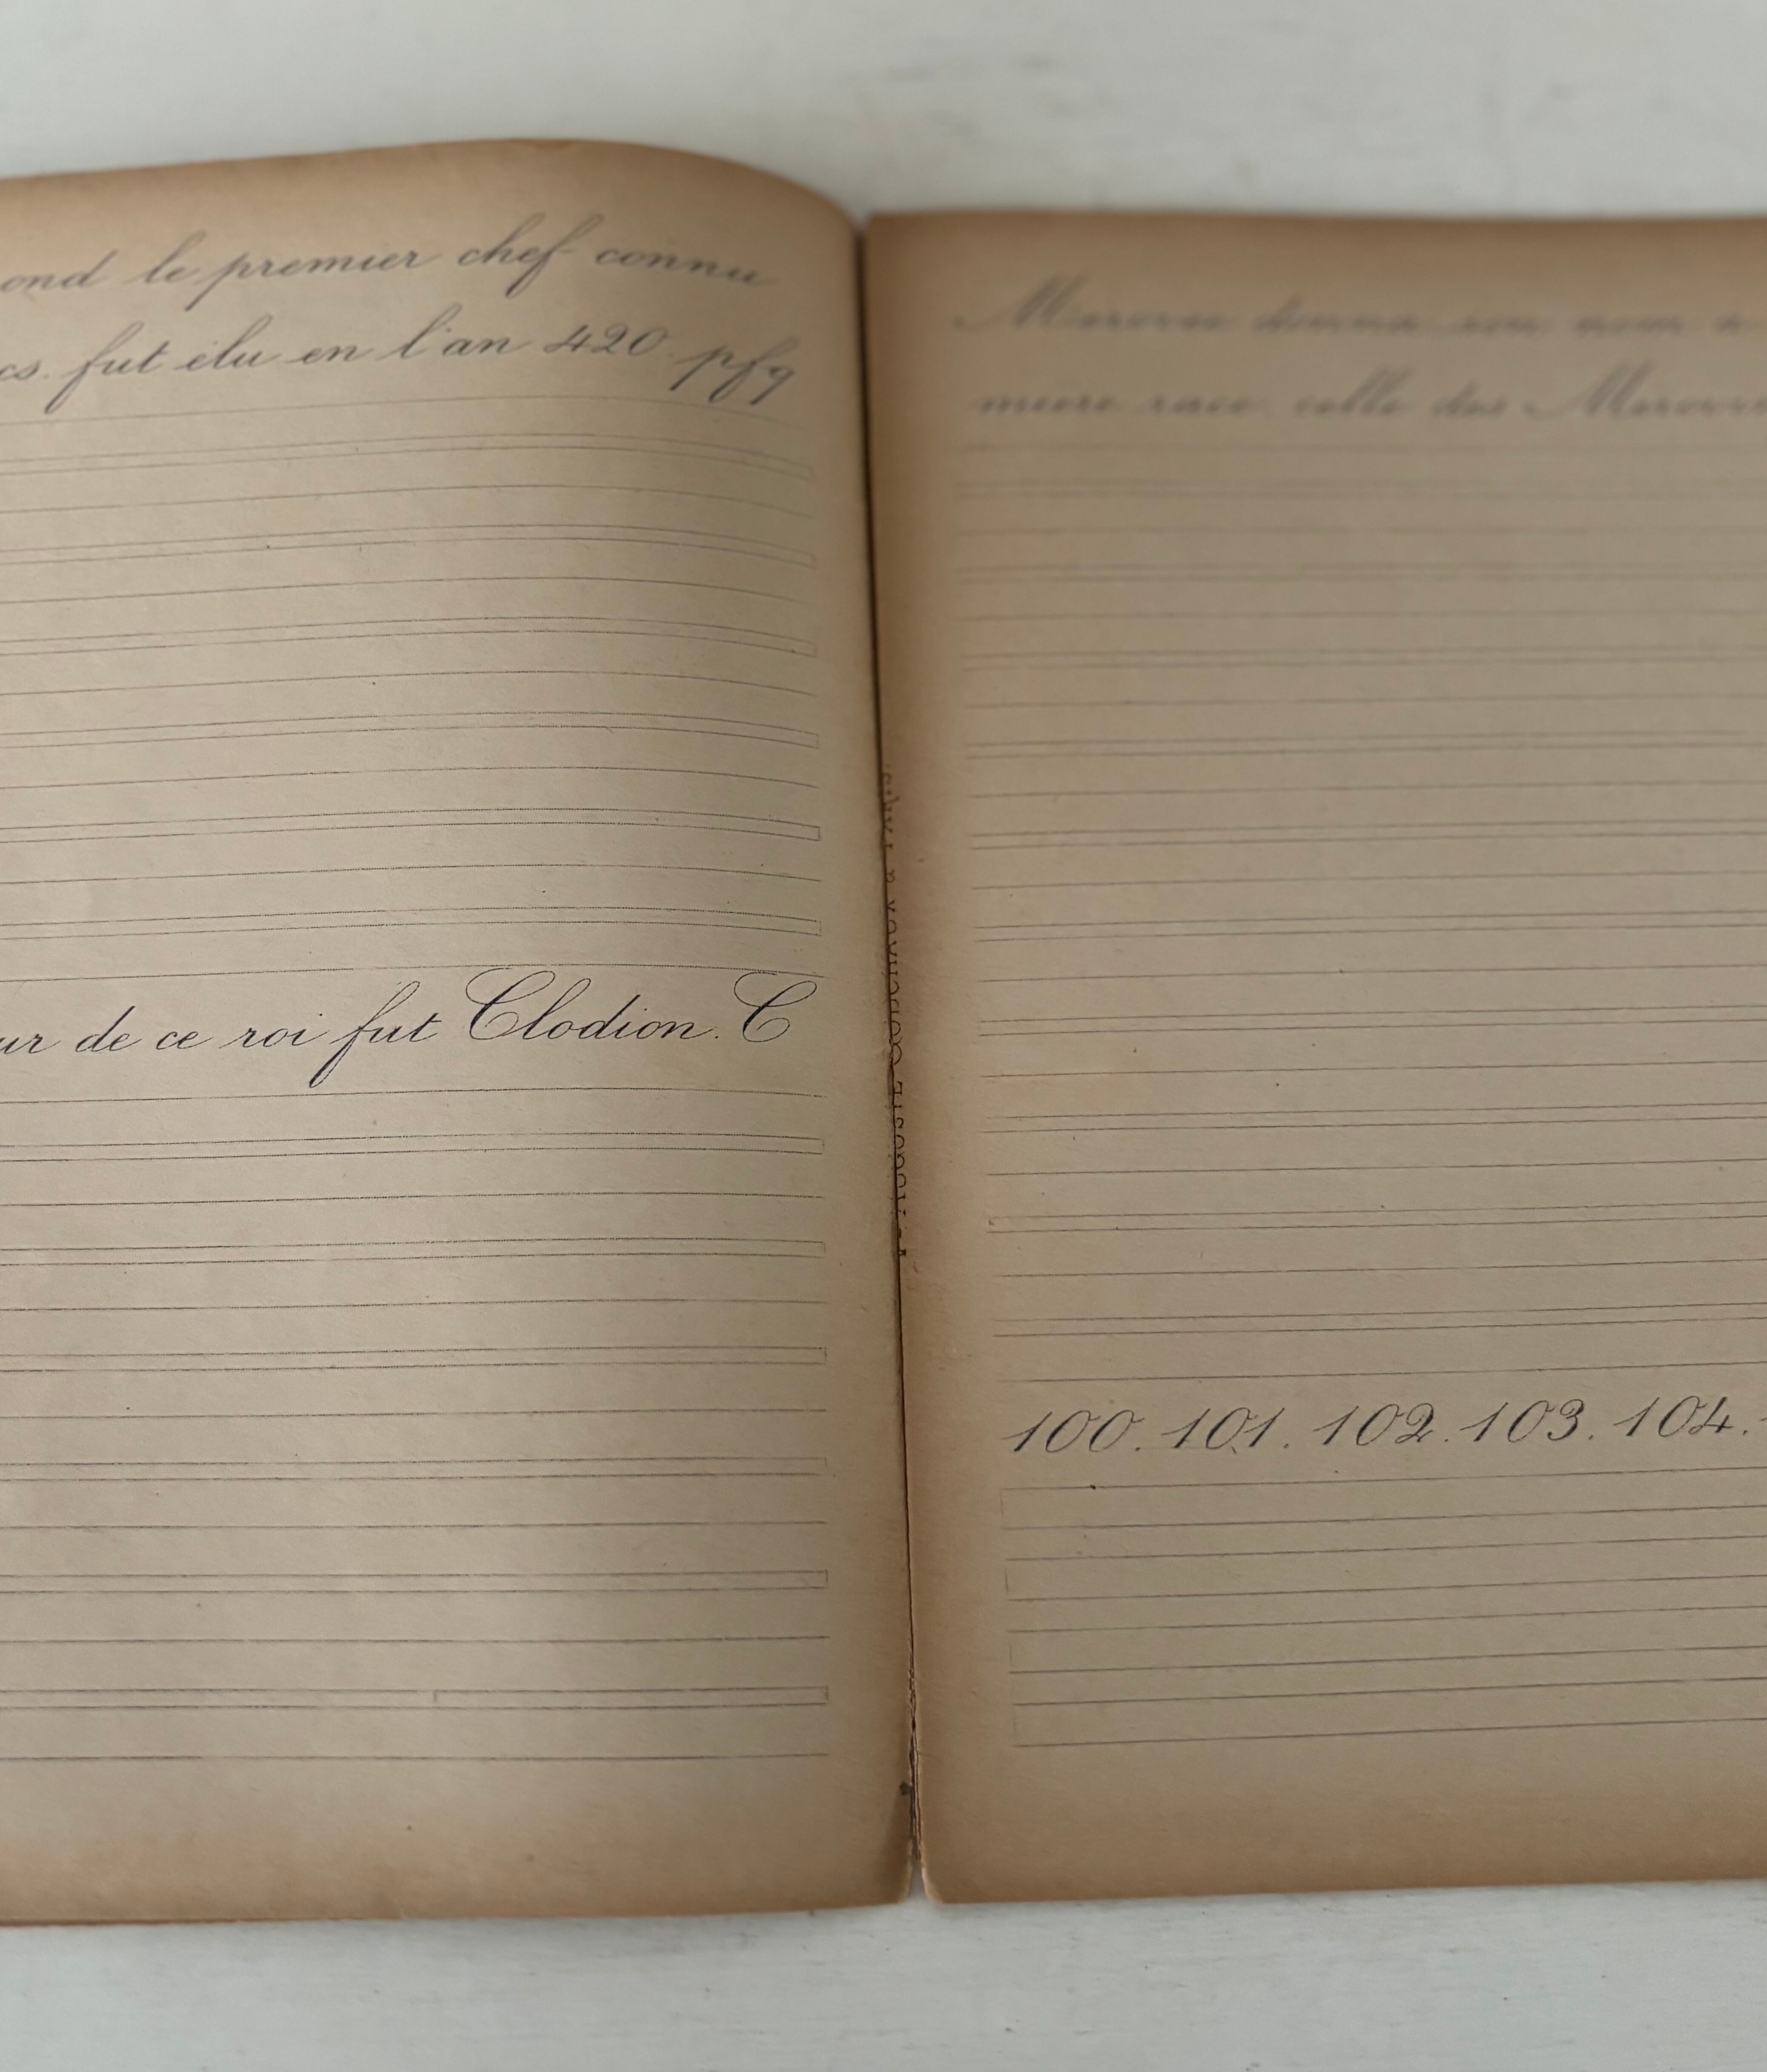 ond le premier chef connu
cs. fut élu en l'an 420. pfq
ur de ce roi fut Clodion. C
AUGUSTE GODCHAUX à PARIS
Merovee donna son nom à
miere race celle des
100. 101. 102. 103. 104.